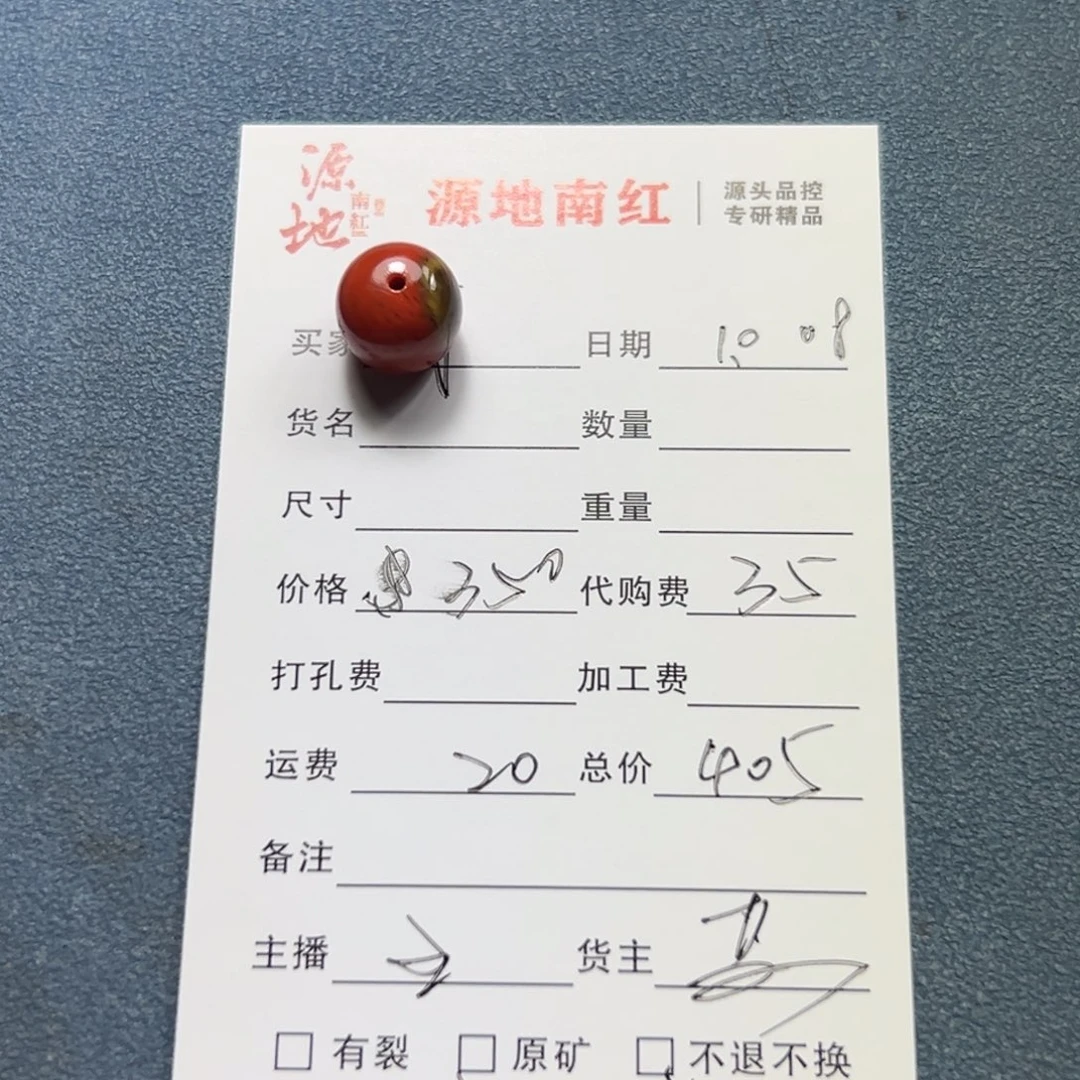 源地 南红
源地南红 源头品控
专研精品
买家 日期 10.08
货名 数量
尺寸 重量
价格 350 代购费 35
打孔费 加工费
运费 20 总价 405
备注
主播 货主
有裂 原矿 不退不换